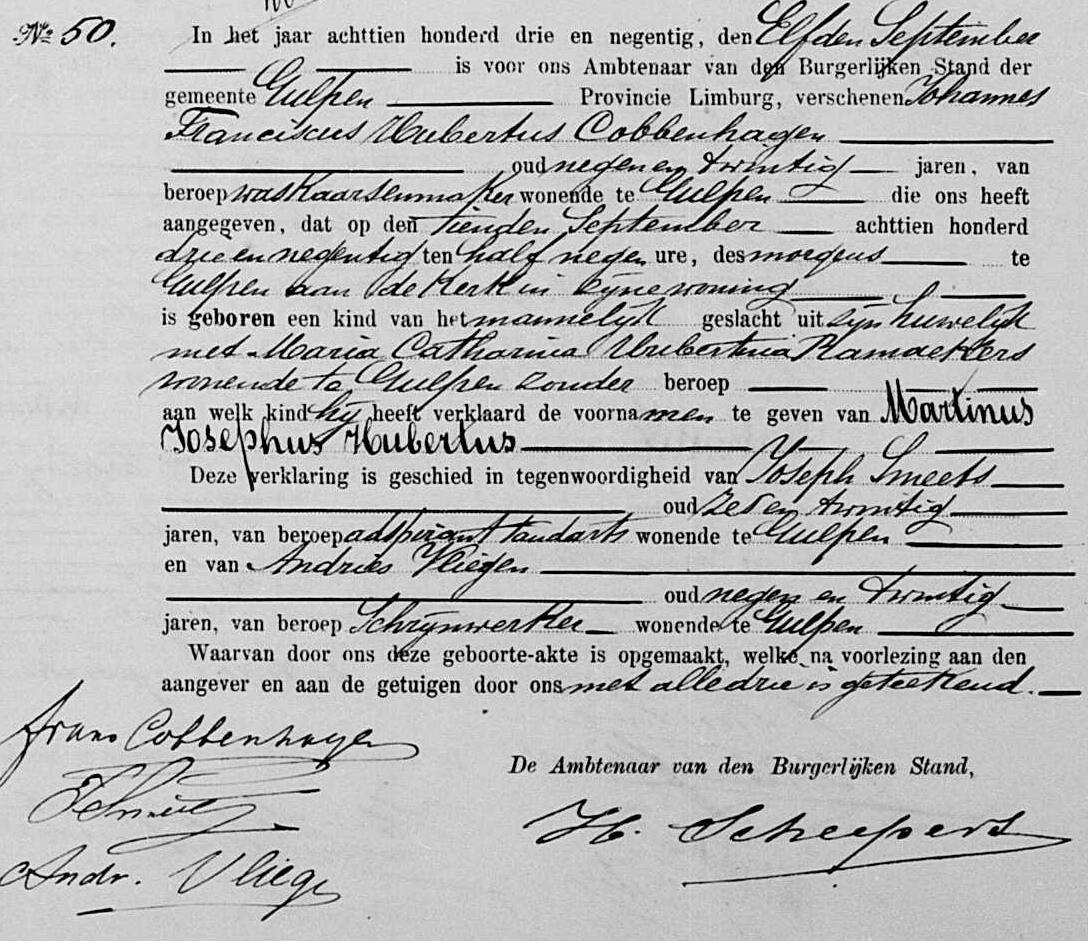 No 50. In het jaar achttien honderd drie en negentig, den Elfden September
is voor ons Ambtenaar van den Burgerlijken Stand der
gemeente Gulpen Provincie Limburg, verschenen Johannes
Franciscus Hubertus Cobbenhagen
oud negen en twintig jaren, van
beroep waskaarsenmaker wonende te Gulpen die ons heeft
aangegeven, dat op den tienden September achttien honderd
drie en negentig ten half negen ure, des morgens te
Gulpen aan de Kerk in zijne woning
is geboren een kind van het mannelijk geslacht uit zijn huwelijk
met Maria Catharina Hubertina Ramaekers
wonende te Gulpen zonder beroep
aan welk kind hij heeft verklaard de voornamen te geven van Martinus
Josephus Hubertus
Deze verklaring is geschied in tegenwoordigheid van Joseph Smeets
oud zes en twintig
jaren, van beroep adspirant tandarts wonende te Gulpen
en van Andries Vliegen
oud negen en twintig
jaren, van beroep Schrijnwerker wonende te Gulpen
Waarvan door ons deze geboorte-akte is opgemaakt, welke na voorlezing aan den
aangever en aan de getuigen door ons met alle drie is geteekend.
Frans Cobbenhagen
De Ambtenaar van den Burgerlijken Stand,
H. Scheepers
Andr. Vliege